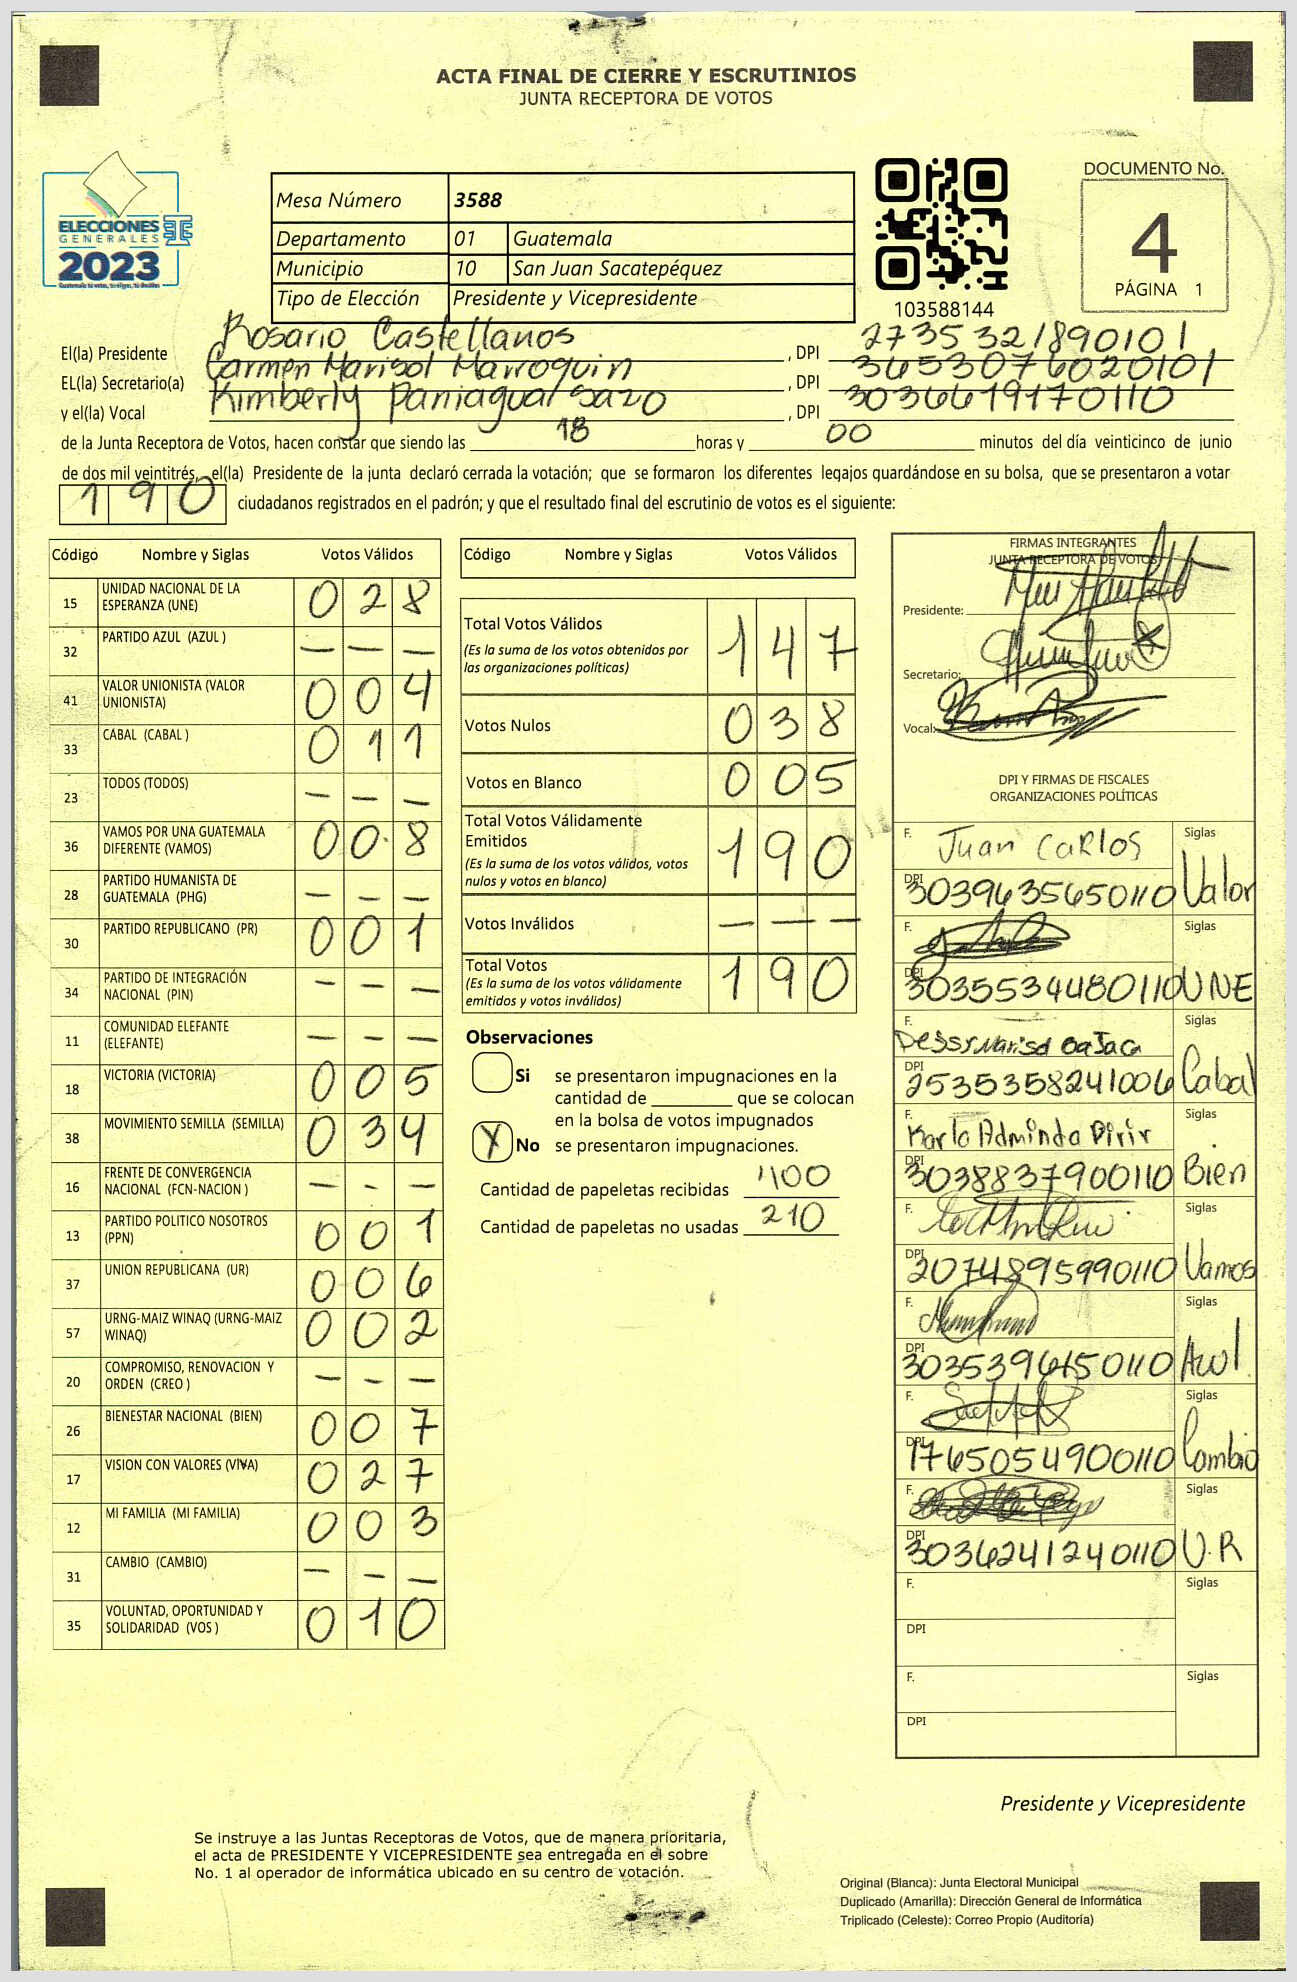 ACTA FINAL DE CIERRE Y ESCRUTINIOS
JUNTA RECEPTORA DE VOTOS
ELECCIONES
GENERALES
2023
Mesa Número 3588
Departamento 01 Guatemala
Municipio 10 San Juan Sacatepéquez
Tipo de Elección Presidente y Vicepresidente
103588144
DOCUMENTO No.
4
PÁGINA 1
El(la) Presidente Rosario Castellanos , DPI 2735321890101
EL(la) Secretario(a) Carmen Marisol Marroquin , DPI 3653076020101
y el(la) Vocal Kimberly Paniagua Sazo , DPI 3036619170110
de la Junta Receptora de Votos, hacen constar que siendo las 18 horas y 00 minutos del día veinticinco de junio
de dos mil veintitrés, el(la) Presidente de la junta declaró cerrada la votación; que se formaron los diferentes legajos guardándose en su bolsa, que se presentaron a votar
190 ciudadanos registrados en el padrón; y que el resultado final del escrutinio de votos es el siguiente:
Código Nombre y Siglas Votos Válidos
15 UNIDAD NACIONAL DE LA ESPERANZA (UNE) 028
32 PARTIDO AZUL (AZUL ) — — —
41 VALOR UNIONISTA (VALOR UNIONISTA) 004
33 CABAL (CABAL ) 011
23 TODOS (TODOS) — — —
36 VAMOS POR UNA GUATEMALA DIFERENTE (VAMOS) 008
28 PARTIDO HUMANISTA DE GUATEMALA (PHG) — — —
30 PARTIDO REPUBLICANO (PR) 001
34 PARTIDO DE INTEGRACIÓN NACIONAL (PIN) — — —
11 COMUNIDAD ELEFANTE (ELEFANTE) — — —
18 VICTORIA (VICTORIA) 005
38 MOVIMIENTO SEMILLA (SEMILLA) 034
16 FRENTE DE CONVERGENCIA NACIONAL (FCN-NACION ) — — —
13 PARTIDO POLITICO NOSOTROS (PPN) 001
37 UNION REPUBLICANA (UR) 006
57 URNG-MAIZ WINAQ (URNG-MAIZ WINAQ) 002
20 COMPROMISO, RENOVACION Y ORDEN (CREO ) — — —
26 BIENESTAR NACIONAL (BIEN) 007
17 VISION CON VALORES (VIVA) 027
12 MI FAMILIA (MI FAMILIA) 003
31 CAMBIO (CAMBIO) — — —
35 VOLUNTAD, OPORTUNIDAD Y SOLIDARIDAD (VOS ) 010
Código Nombre y Siglas Votos Válidos
Total Votos Válidos 147
(Es la suma de los votos obtenidos por
las organizaciones políticas)
Votos Nulos 038
Votos en Blanco 005
Total Votos Válidamente
Emitidos 190
(Es la suma de los votos válidos, votos
nulos y votos en blanco)
Votos Inválidos — — —
Total Votos 190
(Es la suma de los votos válidamente
emitidos y votos inválidos)
Observaciones
Si se presentaron impugnaciones en la
cantidad de ________ que se colocan
en la bolsa de votos impugnados
X No se presentaron impugnaciones.
Cantidad de papeletas recibidas 400
Cantidad de papeletas no usadas 210
FIRMAS INTEGRANTES
JUNTA RECEPTORA DE VOTOS
Presidente:
Secretario:
Vocal:
DPI Y FIRMAS DE FISCALES
ORGANIZACIONES POLÍTICAS
F. Juan CaRlos Siglas
DPI 3039635650110 Valor
F. Siglas
DPI 3035534480110 UNE
F. Siglas
DPI 2535358241006 Cabal
F. Karla Adminda Pirir Siglas
DPI 3038837900110 Bien
F. Siglas
DPI 2074895990110 Vamos
F. Siglas
DPI 3035396150110 Azul
F. Siglas
DPI 1765054900110 Cambio
F. Siglas
DPI 3036241240110 U.R
F. Siglas
DPI
F. Siglas
DPI
Presidente y Vicepresidente
Se instruye a las Juntas Receptoras de Votos, que de manera prioritaria,
el acta de PRESIDENTE Y VICEPRESIDENTE sea entregada en el sobre
No. 1 al operador de informática ubicado en su centro de votación.
Original (Blanca): Junta Electoral Municipal
Duplicado (Amarilla): Dirección General de Informática
Triplicado (Celeste): Correo Propio (Auditoría)